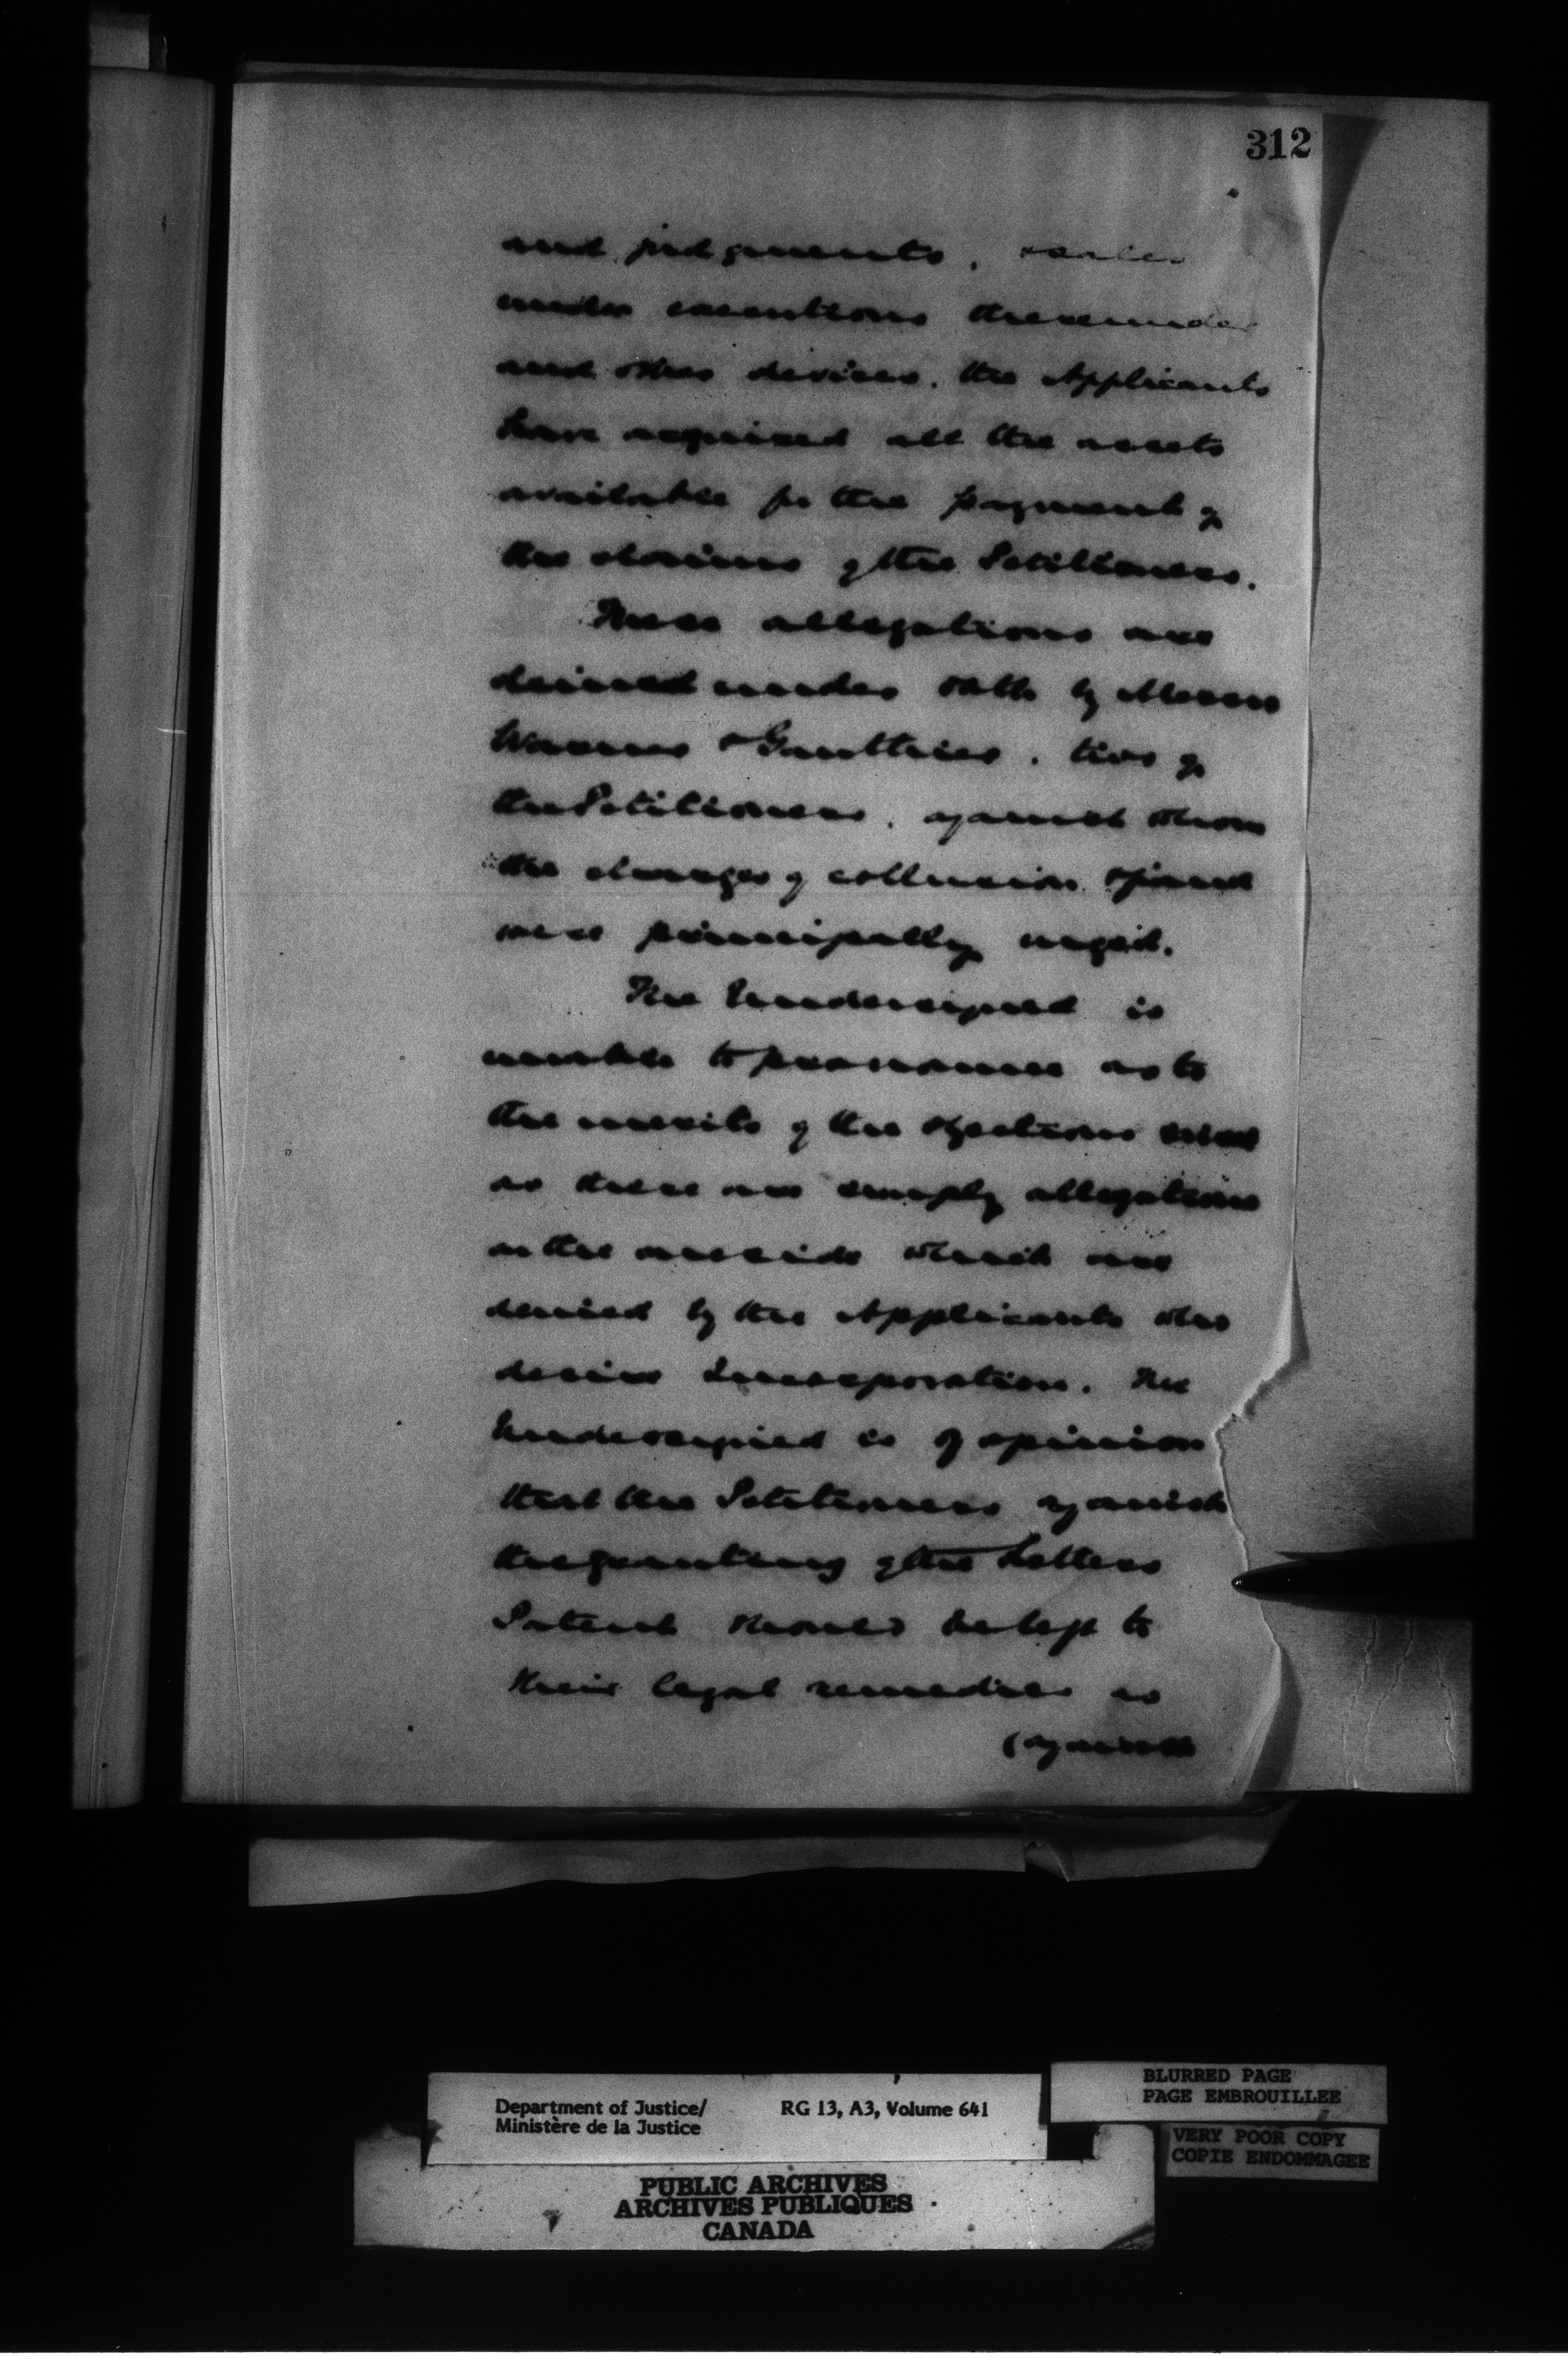 312
and judgments, & sales
under executions thereunder
and other devices, the Applicants
have acquired all the assets
available for the payment of
the claims of the Petitioners.
These allegations are
denied under oath by Messrs
& Gauthier, two of
the Petitioners, against whom
the charges of collusion & fraud
were principally urged.
The Undersigned is
unable to pronounce as to
the merits of the objections
as there are simply allegations
on the one side which are
denied by the Applicants who
desire Incorporation. The
Undersigned is of opinion
that the Petitioners against
the granting of the Letters
Patent should be left to
their legal remedies as
(against
Department of Justice/
Ministère de la Justice
RG 13, A3, Volume 641
BLURRED PAGE
PAGE EMBROUILLEE
VERY POOR COPY
COPIE ENDOMMAGEE
PUBLIC ARCHIVES
ARCHIVES PUBLIQUES
CANADA